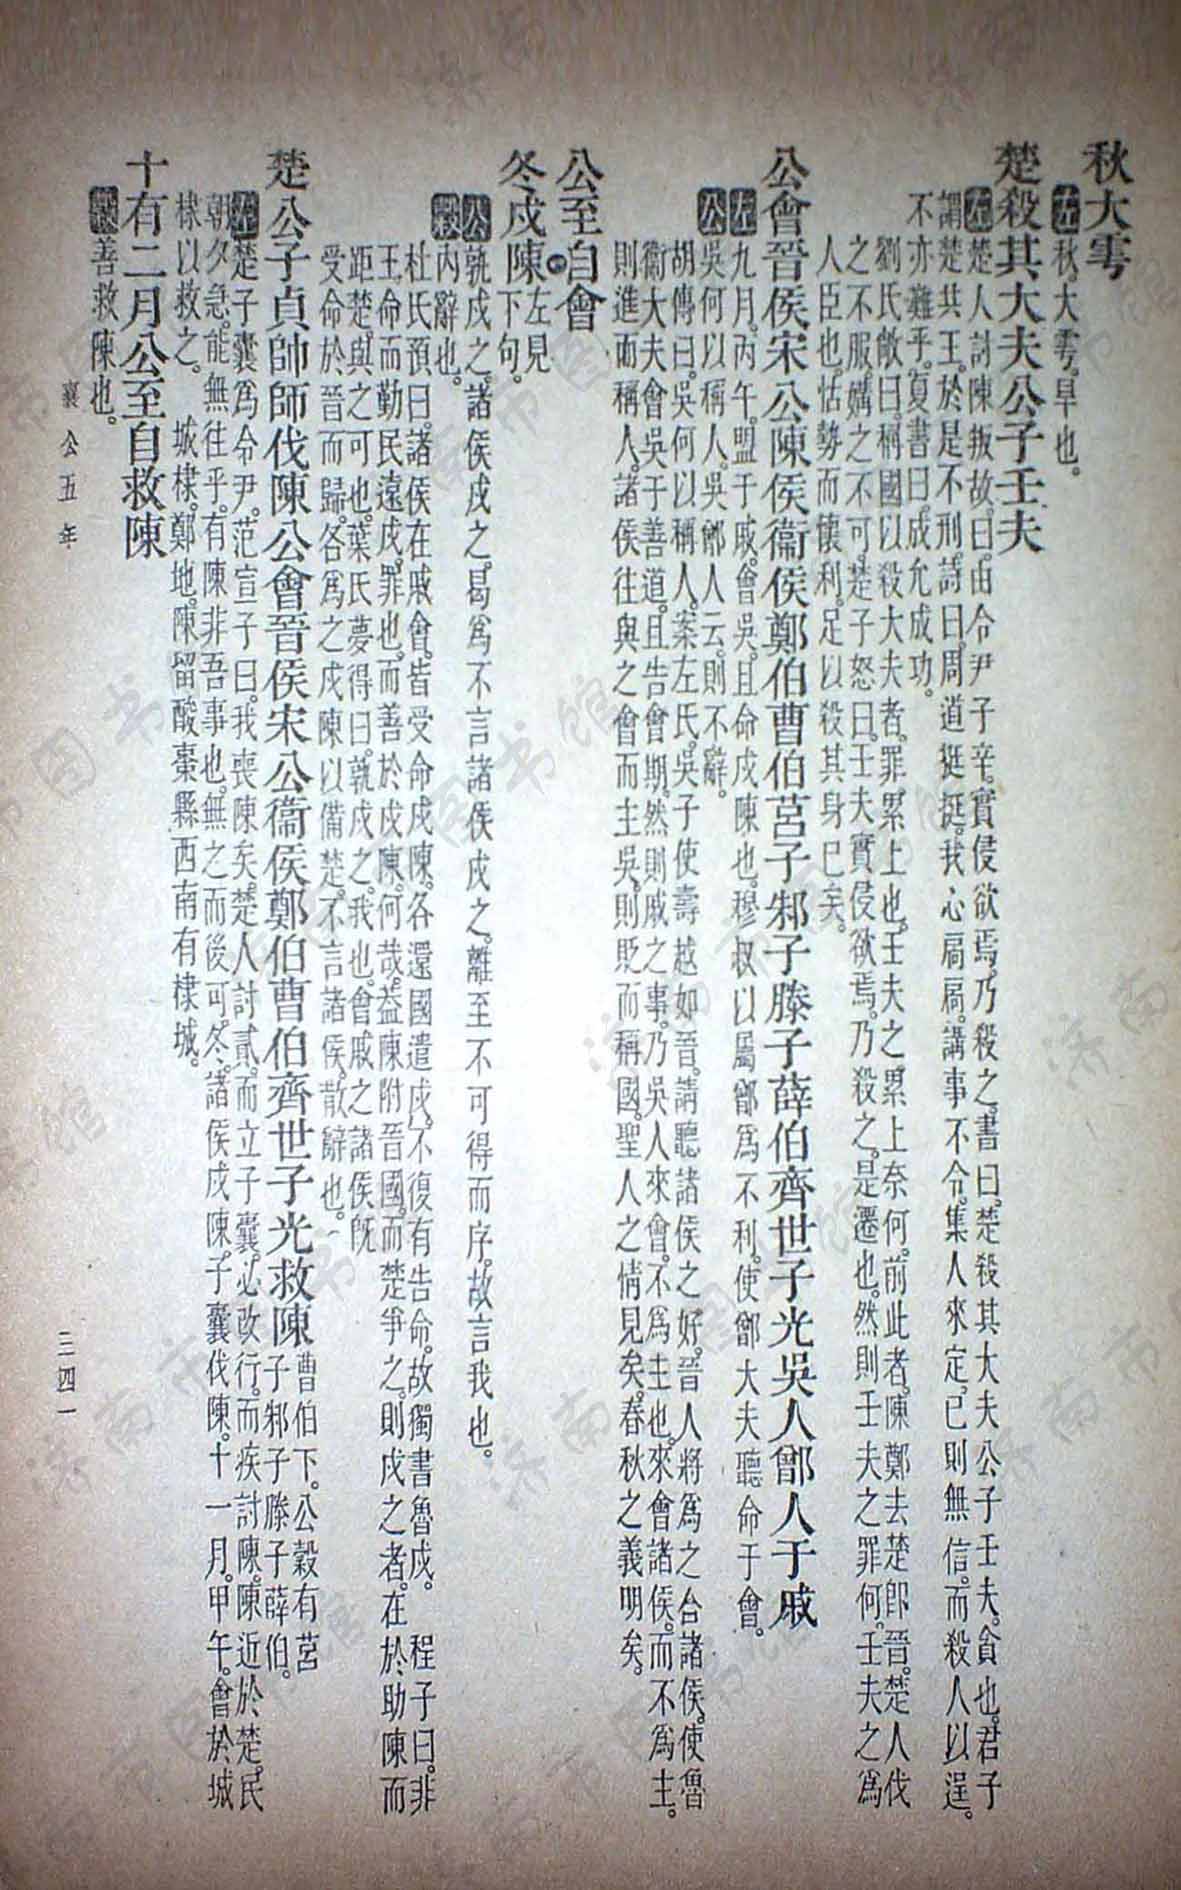 秋大雩
左秋大雩。旱也。
楚殺其大夫公子壬夫
左楚人討陳叛故。曰。由令尹子辛。實侵欲焉。乃殺之。書曰。楚殺其大夫公子壬夫。貪也。君子
謂楚共王。於是不刑。詩曰。周道挺挺。我心扃扃。講事不令。集人來定。已則無信。而殺人以逞。
不亦難乎。夏書曰。成允成功。
劉氏敞曰。稱國以殺大夫者。罪累上也。壬夫之累上奈何。前此者。陳鄭去楚卽晉。楚人伐
之不服。媾之不可。楚子怒曰。壬夫實侵欲焉。乃殺之。是遷也。然則壬夫之罪何。壬夫之爲
人臣也。怙勢而懷利。足以殺其身已矣。
公會晉侯宋公陳侯衞侯鄭伯曹伯莒子邾子滕子薛伯齊世子光吳人鄫人于戚
左九月。丙午。盟于戚。會吳。且命戍陳也。穆叔以屬鄫爲不利。使鄫大夫聽命于會。
公吳何以稱人。吳鄫人云。則不辭。
胡傳曰。吳何以稱人。案左氏。吳子使壽越如晉。請聽諸侯之好。晉人將爲之合諸侯。使魯
衞大夫會吳于善道。且告會期。然則戚之事。乃吳人來會。不爲主也。來會諸侯。而不爲主。
則進而稱人。諸侯往與之會而主吳。則貶而稱國。聖人之情見矣。春秋之義明矣。
公至自會
冬戍陳左見下句。
公孰戍之。諸侯戍之。曷爲不言諸侯戍之。離至不可得而序。故言我也。
穀內辭也。
杜氏預曰。諸侯在戚會。皆受命戍陳。各還國遣戍。不復有告命。故獨書魯戍。 程子曰。非
王命而勤民遠戍。罪也。而善於戍陳。何哉。益陳附晉國。而楚爭之。則戍之者。在於助陳而
距楚。與之可也。葉氏夢得曰。孰戍之。我也。會戚之諸侯既
受命於晉而歸。各爲之戍陳以備楚。不言諸侯。散辭也。
楚公子貞帥師伐陳公會晉侯宋公衞侯鄭伯曹伯齊世子光救陳曹伯下。公穀有莒子邾子滕子薛伯。
左楚子囊爲令尹。范宣子曰。我喪陳矣。楚人討貳。而立子囊。必改行。而疾討陳。陳近於楚。民
朝夕急。能無往乎。有陳非吾事也。無之而後可。冬。諸侯戍陳。子囊伐陳。十一月。甲午。會於城
棣以救之。 城棣。鄭地。陳留酸棗縣西南有棣城。
十有二月公至自救陳
穀善救陳也。
襄公五年
三四一